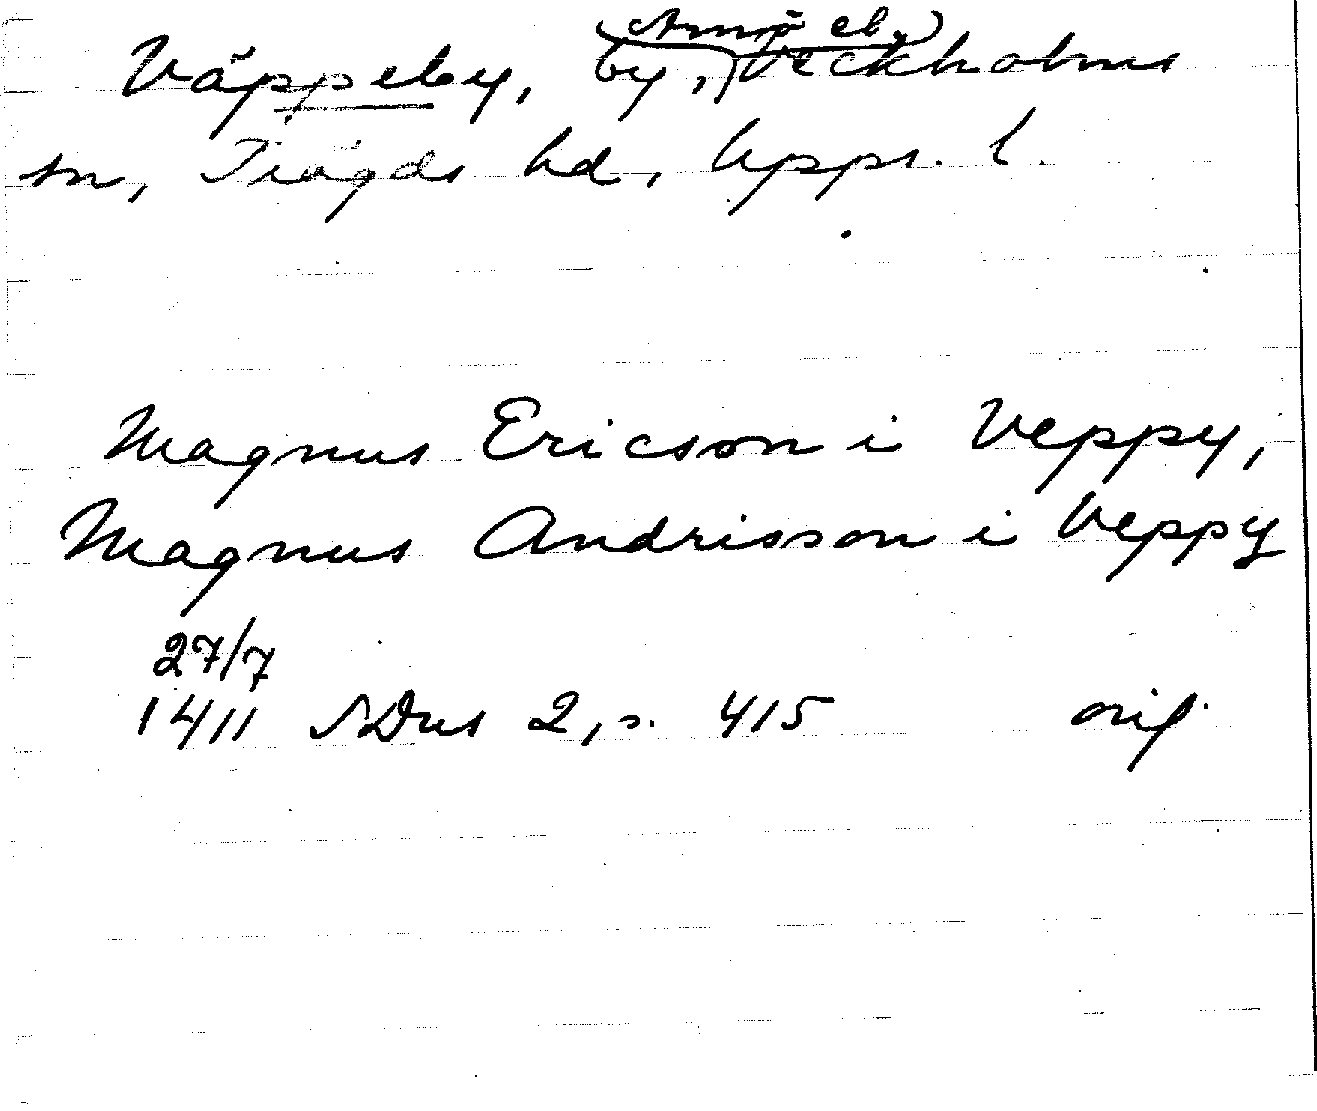 Väppeby, by, (Arnö el.) Veckholms
sn, Trögds hd, Upps. l.
Magnus Ericson i Veppy,
Magnus Andrisson i Veppy
27/7
1411 SDns 2, s. 415 orig.